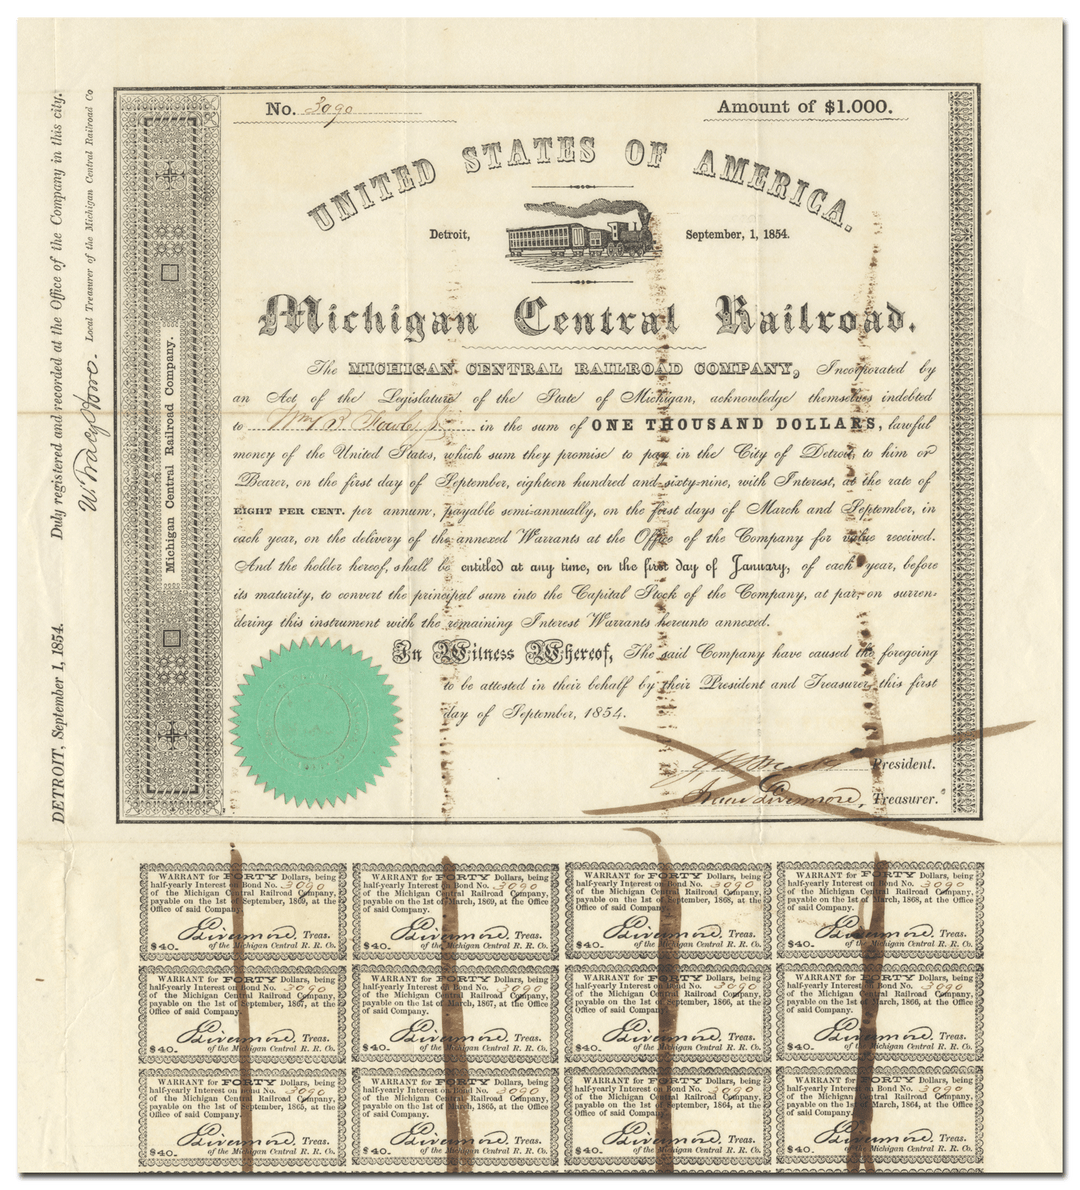 No. 3090
Amount of $1.000.
UNITED STATES OF AMERICA.
Detroit,
September, 1, 1854.
Michigan Central Railroad.
The MICHIGAN CENTRAL RAILROAD COMPANY, Incorporated by
an Act of the Legislature of the State of Michigan, acknowledge themselves indebted
to Wm. B. Fowle Jr. in the sum of ONE THOUSAND DOLLARS, lawful
money of the United States, which sum they promise to pay in the City of Detroit, to him or
Bearer, on the first day of September, eighteen hundred and sixty-nine, with Interest, at the rate of
EIGHT PER CENT. per annum, payable semi-annually, on the first days of March and September, in
each year, on the delivery of the annexed Warrants at the Office of the Company for value received.
And the holder hereof, shall be entitled at any time, on the first day of January, of each year, before
its maturity, to convert the principal sum into the Capital Stock of the Company, at par, on surren-
dering this instrument with the remaining Interest Warrants hereunto annexed.
In Witness Whereof, The said Company have caused the foregoing
to be attested in their behalf by their President and Treasurer, this first
day of September, 1854.
President.
Livermore, Treasurer.
Michigan Central Railroad Company.
DETROIT, September 1, 1854. Duly registered and recorded at the Office of the Company in this city.
W. Tracy Howe. Local Treasurer of the Michigan Central Railroad Co
WARRANT for FORTY Dollars, being
half-yearly Interest on Bond No. 3090
of the Michigan Central Railroad Company,
payable on the 1st of September, 1869, at the
Office of said Company.
Livermore, Treas.
$40. of the Michigan Central R. R. Co.
WARRANT for FORTY Dollars, being
half-yearly Interest on Bond No. 3090
of the Michigan Central Railroad Company,
payable on the 1st of March, 1869, at the
Office of said Company.
Livermore, Treas.
$40. of the Michigan Central R. R. Co.
WARRANT for FORTY Dollars, being
half-yearly Interest on Bond No. 3090
of the Michigan Central Railroad Company,
payable on the 1st of September, 1868, at the
Office of said Company.
Livermore, Treas.
$40. of the Michigan Central R. R. Co.
WARRANT for FORTY Dollars, being
half-yearly Interest on Bond No. 3090
of the Michigan Central Railroad Company,
payable on the 1st of March, 1868, at the
Office of said Company.
Livermore, Treas.
$40. of the Michigan Central R. R. Co.
WARRANT for FORTY Dollars, being
half-yearly Interest on Bond No. 3090
of the Michigan Central Railroad Company,
payable on the 1st of September, 1867, at the
Office of said Company.
Livermore, Treas.
$40. of the Michigan Central R. R. Co.
WARRANT for FORTY Dollars, being
half-yearly Interest on Bond No. 3090
of the Michigan Central Railroad Company,
payable on the 1st of March, 1867, at the
Office of said Company.
Livermore, Treas.
$40. of the Michigan Central R. R. Co.
WARRANT for FORTY Dollars, being
half-yearly Interest on Bond No. 3090
of the Michigan Central Railroad Company,
payable on the 1st of September, 1866, at the
Office of said Company.
Livermore, Treas.
$40. of the Michigan Central R. R. Co.
WARRANT for FORTY Dollars, being
half-yearly Interest on Bond No. 3090
of the Michigan Central Railroad Company,
payable on the 1st of March, 1866, at the
Office of said Company.
Livermore, Treas.
$40. of the Michigan Central R. R. Co.
WARRANT for FORTY Dollars, being
half-yearly Interest on Bond No. 3090
of the Michigan Central Railroad Company,
payable on the 1st of September, 1865, at the Office
of said Company.
Livermore, Treas.
$40. of the Michigan Central R. R. Co.
WARRANT for FORTY Dollars, being
half-yearly Interest on Bond No. 3090
of the Michigan Central Railroad Company,
payable on the 1st of March, 1865, at the Office
of said Company.
Livermore, Treas.
$40. of the Michigan Central R. R. Co.
WARRANT for FORTY Dollars, being
half-yearly Interest on Bond No. 3090
of the Michigan Central Railroad Company,
payable on the 1st of September, 1864, at the
Office of said Company.
Livermore, Treas.
$40. of the Michigan Central R. R. Co.
WARRANT for FORTY Dollars, being
half-yearly Interest on Bond No. 3090
of the Michigan Central Railroad Company,
payable on the 1st of March, 1864, at the Office
of said Company.
Livermore, Treas.
$40. of the Michigan Central R. R. Co.